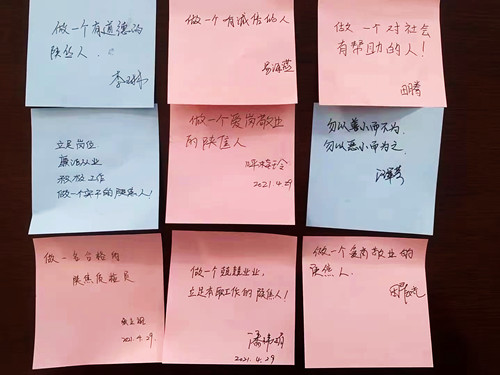 做一个有道德的
陕焦人。
做一个有诚信的人
做一个对社会
有帮助的人！
田腾
立足岗位
廉洁从业
做一个实干的陕焦人！
做一个爱岗敬业
的陕焦人
2021.4.29
勿以善小而不为
勿以恶小而为之
做一名合格的
陕焦质检员
2021.4.29.
做一个兢兢业业，
立足本职工作的陕焦人！
2021.4.29
做一个爱岗敬业的
陕焦人